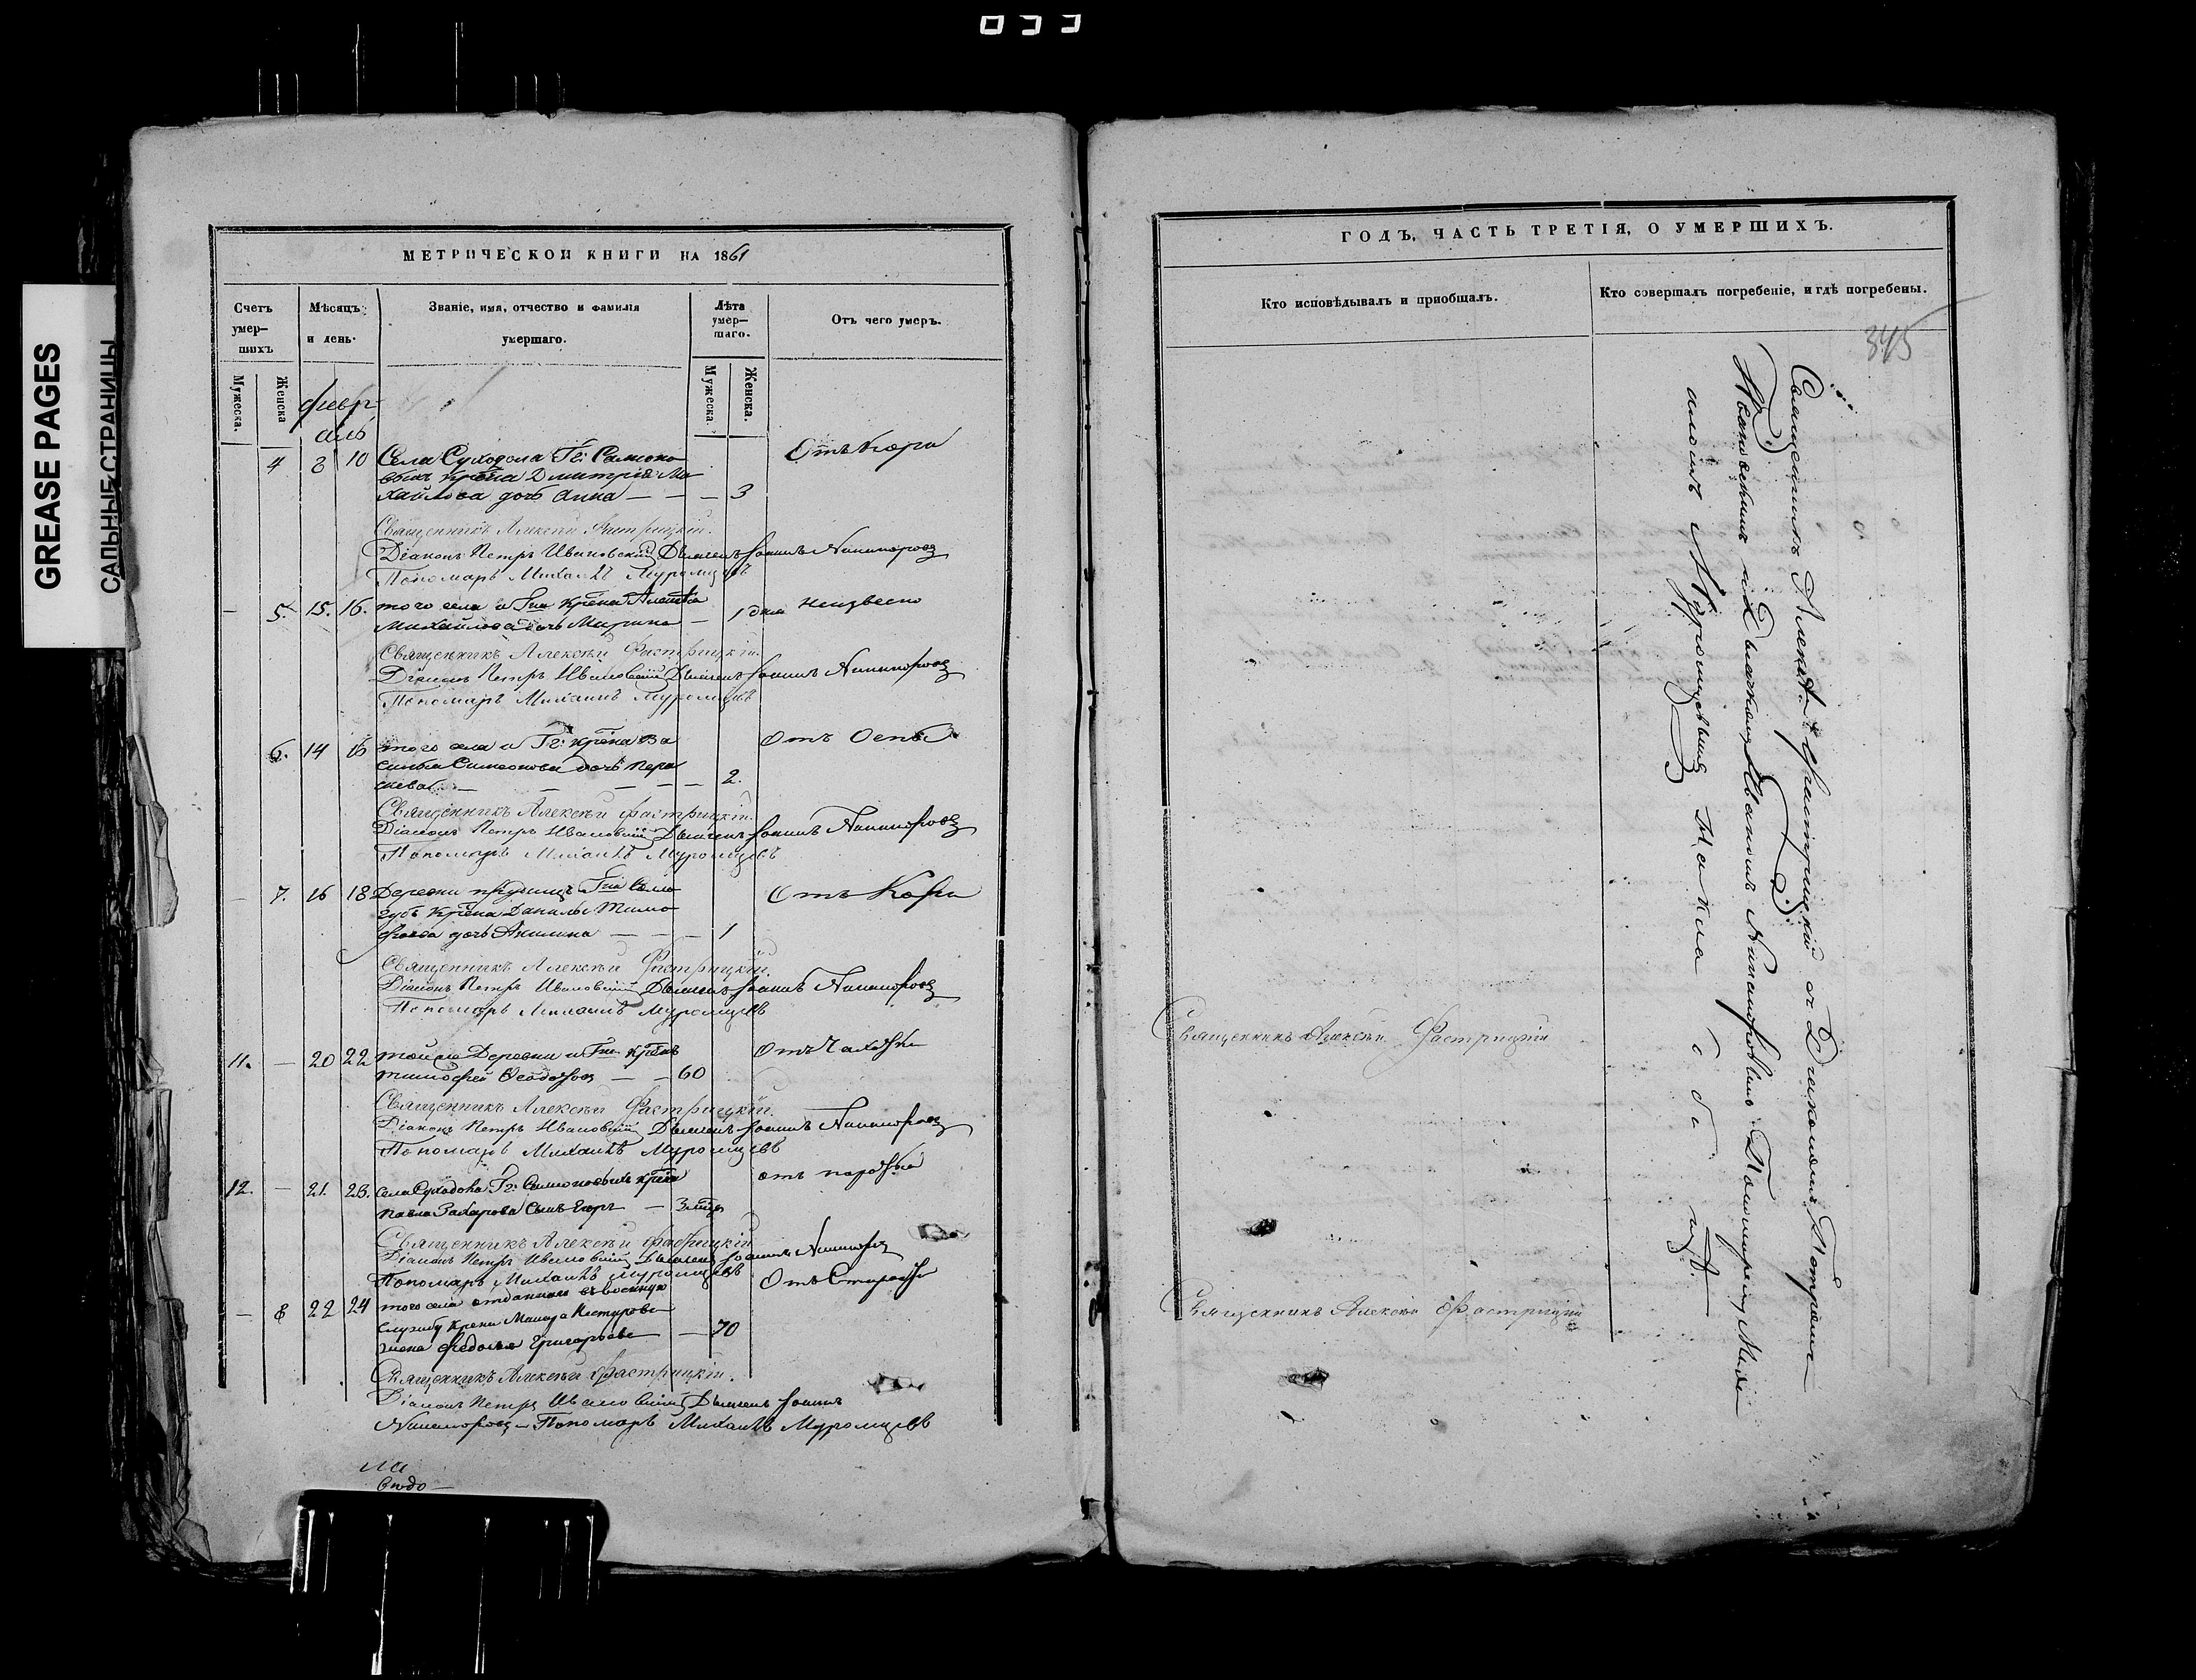 033
GREASE PAGES
САЛЬНЫЕ СТРАНИЦЫ
МЕТРИЧЕСКОЙ КНИГИ НА 1861
Счетъ умер-шихъ
Мѣсяцъ и день.
Званіе, имя, отчество и фамилія умершаго.
Лѣта умер-шаго.
Отъ чего умеръ.
Мужеска.
Женска
Мужеска.
Женска.
февр
аль
4 8 10 Села Суходола Гг: Самсоно
выхъ крѣна Димитрія Ми
хайлова дочь Анна — — — 3
Отъ кори
Священникъ Алексѣй Фастрицкій.
Діаконъ Петръ Ивановскій Дьячекъ Іоаннъ Никаноровъ
Пономарь Михаилъ Муромцевъ
— 5. 15. 16. того села и Гна крѣна
Михайлова дочь Марина — 1 дня неизвесно
Священникъ Алексѣй Фастрицкій.
Діаконъ Петръ Ивановскій Дьячекъ Іоаннъ Никаноровъ
Пономарь Михаилъ Муромцевъ
6. 14 16 того села и Гг: крѣна Ва
силья Симеонова дочь Пара
скева — — — — — 2.
Отъ Оспы
Священникъ Алексѣй Фастрицкій.
Діаконъ Петръ Ивановскій Дьячекъ Іоаннъ Никаноровъ
Пономарь Михаилъ Муромцевъ
— 7. 16 18 Деревни Гна
крѣна Данилы Тимо
фѣева дочь Акилина — — — 1
Отъ Кори
Священникъ Алексѣй Фастрицкій.
Діаконъ Петръ Ивановскій Дьячекъ Іоаннъ Никаноровъ
Пономарь Михаилъ Муромцевъ
11. — 20 22 той же Деревни и Гна крѣнъ
Тимофей Ѳеодоровъ — — 60
Отъ Чахотки
Священникъ Алексѣй Фастрицкій.
Діаконъ Петръ Ивановскій Дьячекъ Іоаннъ Никаноровъ
Пономарь Михаилъ Муромцевъ
12. — 21. 23. села Суходола Гг: Самсоновыхъ крѣна
Павла Захарова сынъ Егоръ —
Священникъ Алексѣй Фастрицкій
Діаконъ Петръ Ивановскій Дьячекъ Іоаннъ Никаноровъ
Пономарь Михаилъ Муромцевъ
Отъ Старости
— 8 22 24 того села отданнаго въ военную
службу крѣна
жена Федосья Григорьева — — 70
Священникъ Алексѣй Фастрицкій.
Діаконъ Петръ Ивановскій Дьячекъ Іоаннъ
Никаноровъ — Пономарь Михаилъ Муромцевъ
ГОДЪ, ЧАСТЬ ТРЕТІЯ, О УМЕРШИХЪ.
Кто исповѣдывалъ и приобщалъ.
Кто совершалъ погребеніе, и гдѣ погребены.
345
Священникъ Алексѣй Фастрицкій съ Діакономъ Петромъ
Ивановскимъ и Дьячкомъ Іоанномъ Никаноровымъ Пономаремъ Миха
иломъ Муромцевымъ
Священникъ Алексѣй Фастрицкій
Священникъ Алексѣй Фастрицкій